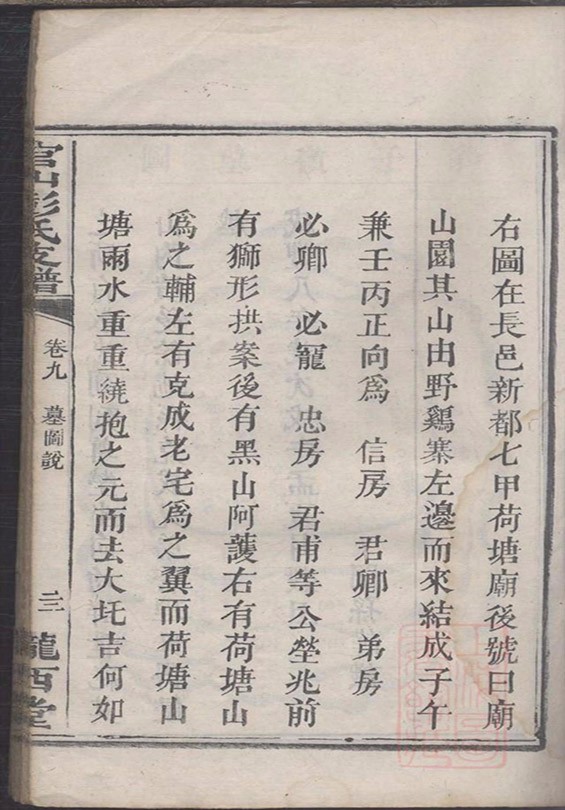 右圖在長邑新都七甲荷塘廟後號曰廟
山園其山由野鷄寨左邊而來結成子午
兼壬丙正向爲 信房 君卿 弟房
必卿 必寵 忠房 君甫等公塋兆前
有獅形拱案後有黑山阿護右有荷塘山
爲之輔左有克成老宅爲之翼而荷塘山
塘兩水重重繞抱之元而去大圫吉何如
官山彭氏支譜
卷九 墓圖說
二三
隴西堂